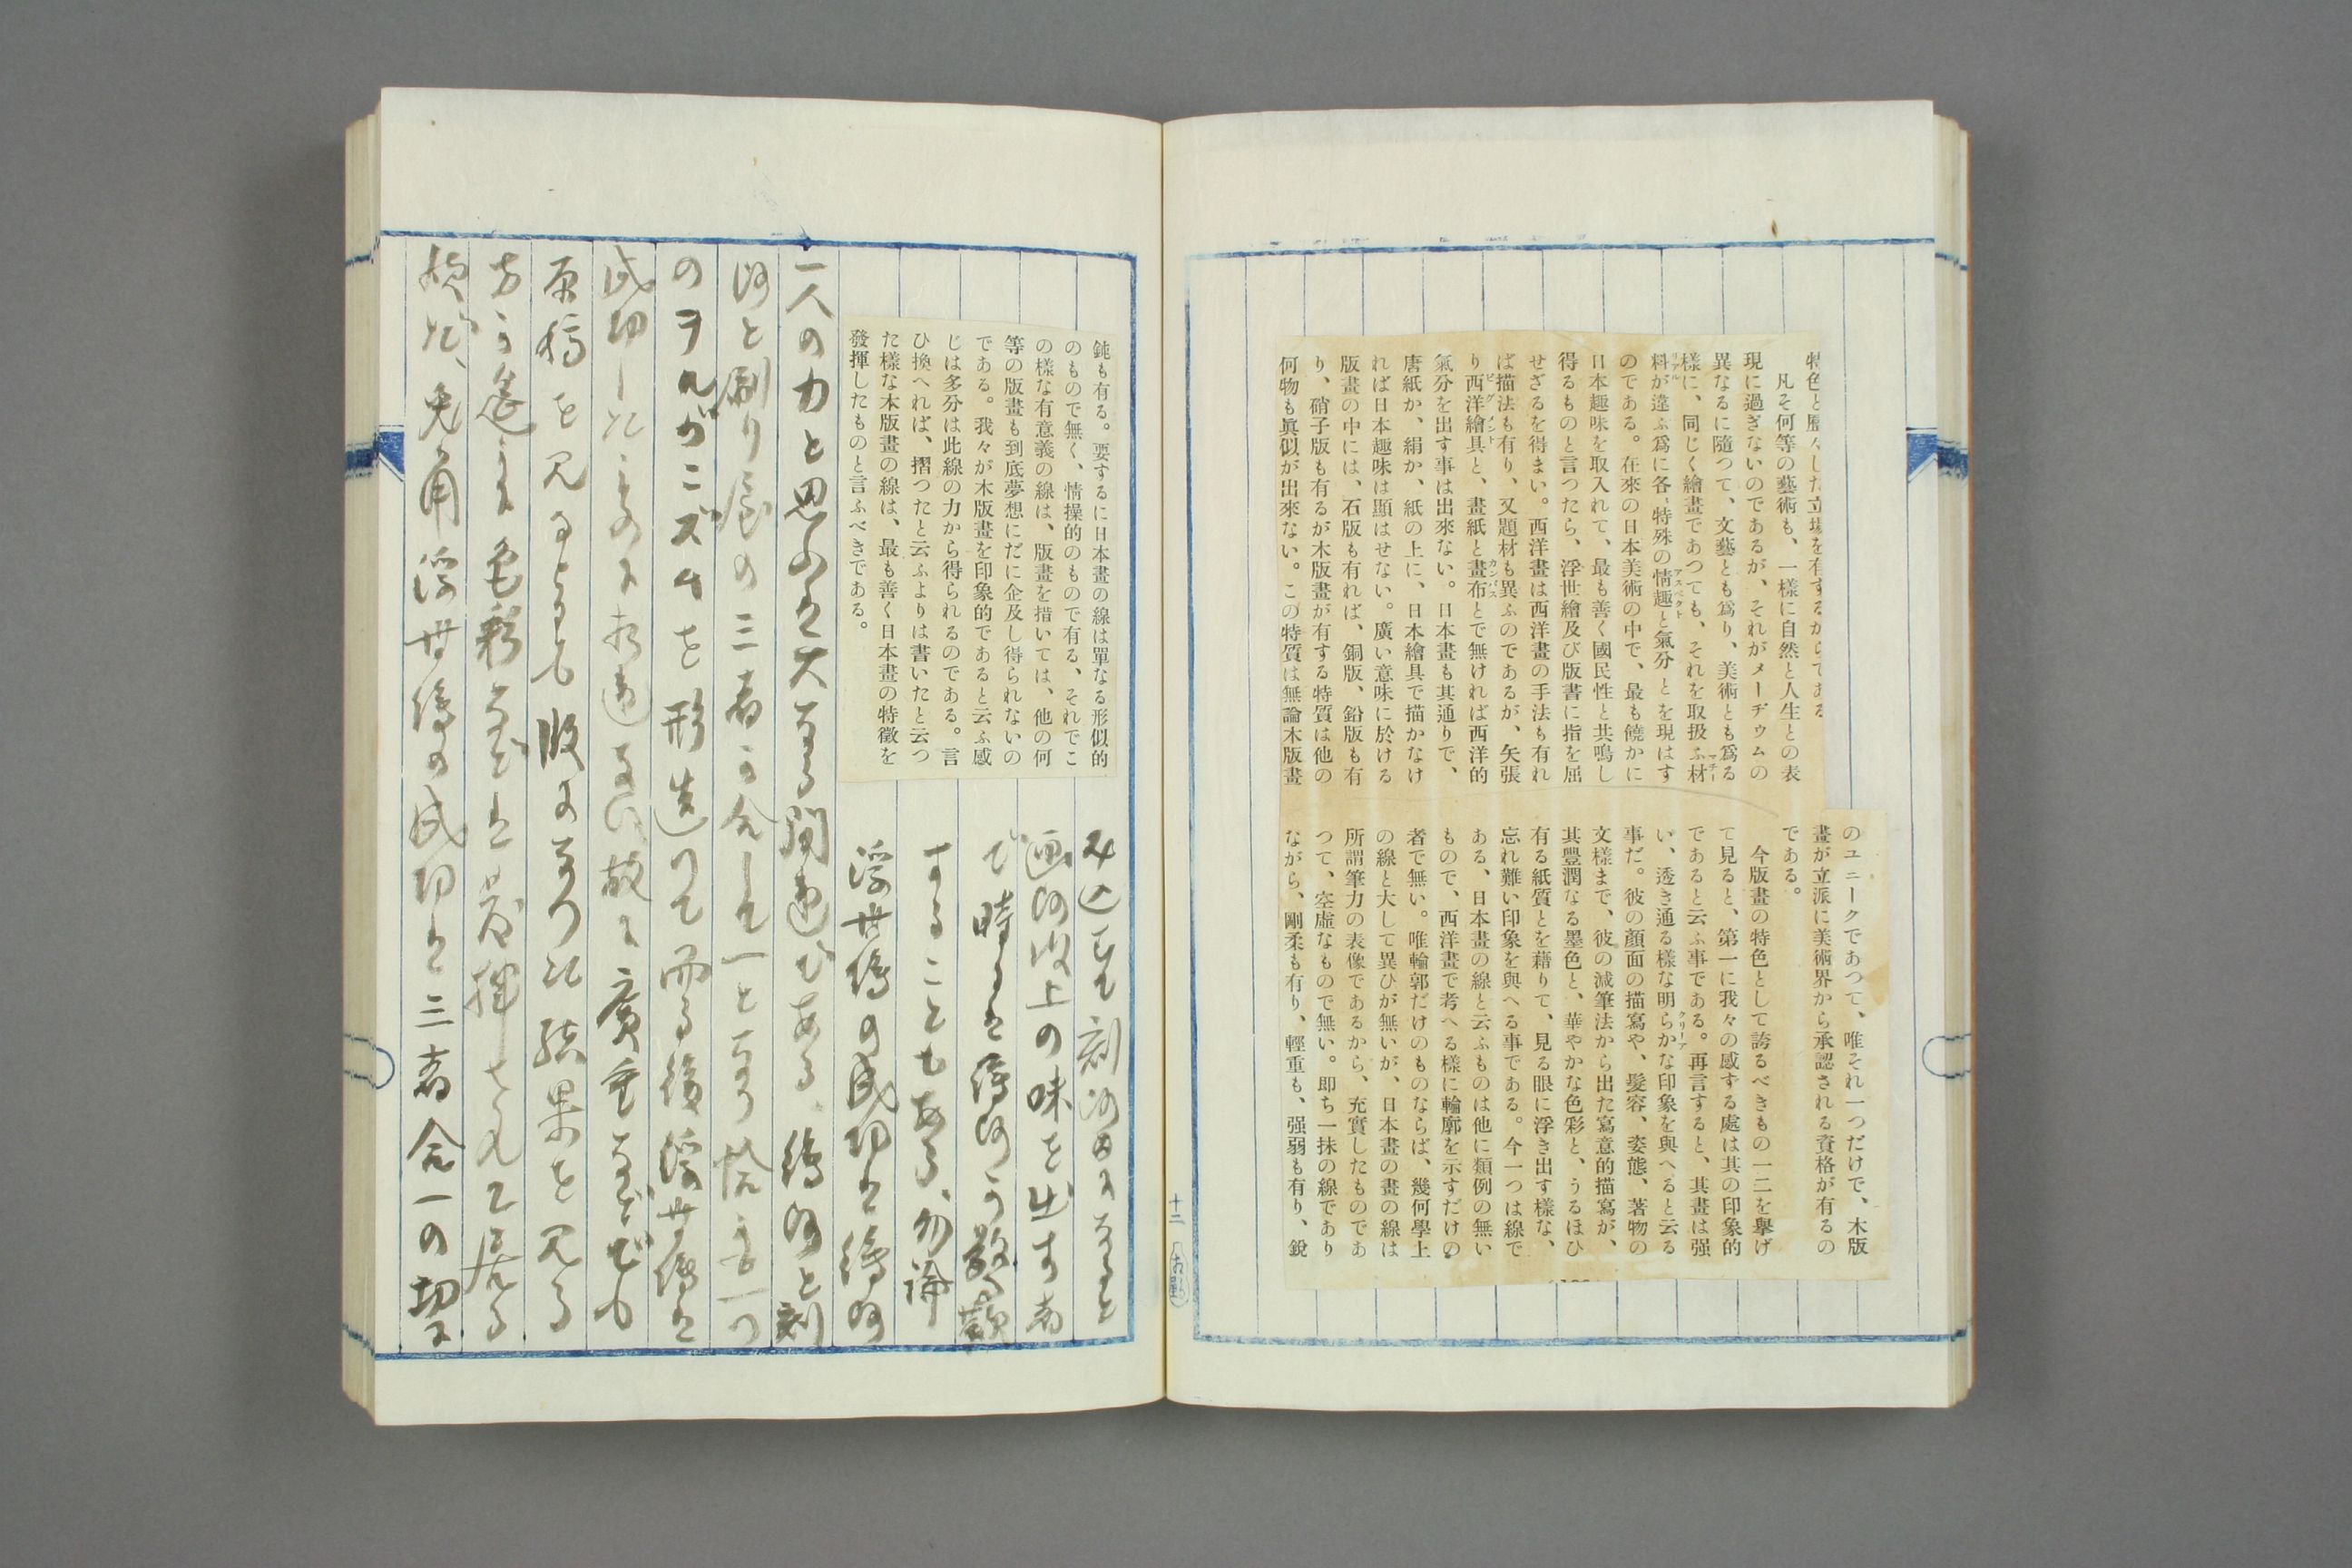 特色と歴々した立場を有するからである
凡そ何等の藝術も、一樣に自然と人生との表
現に過ぎないのであるが、それがメーヂウムの
異なるに隨つて、文藝とも爲り、美術とも爲る
樣に、同じく繪畫であつても、それを取扱ふ材
料が違ふ爲に各〻特殊の情趣と氣分とを現はす
のである。在來の日本美術の中で、最も饒かに
日本趣味を取入れて、最も善く國民性と共鳴し
得るものと言つたら、浮世繪及び版書に指を屈
せざるを得まい。西洋畫は西洋畫の手法も有れ
ば描法も有り、又題材も異ふのであるが、矢張
り西洋繪具と、畫紙と畫布とで無ければ西洋的
氣分を出す事は出來ない。日本畫も其通りで、
唐紙か、絹か、紙の上に、日本繪具で描かなけ
れば日本趣味は顯はせない。廣い意味に於ける
版畫の中には、石版も有れば、銅版、鉛版も有
り、硝子版も有るが木版畫が有する特質は他の
何物も眞似が出來ない。この特質は無論木版畫
のユニークであつて、唯それ一つだけで、木版
畫が立派に美術界から承認される資格が有るの
である。
今版畫の特色として誇るべきもの一二を擧げ
て見ると、第一に我々の感ずる處は其の印象的
であると云ふ事である。再言すると、其畫は强
い、透き通る樣な明らかな印象を與へると云る
事だ。彼の顏面の描寫や、髮容、姿態、著物の
文樣まで、彼の減筆法から出た寫意的描寫が、
其豐潤なる墨色と、華やかな色彩と、うるほひ
有る紙質とを藉りて、見る眼に浮き出す樣な、
忘れ難い印象を與へる事である。今一つは線で
ある、日本畫の線と云ふものは他に類例の無い
もので、西洋畫で考へる樣に輪廓を示すだけの
者で無い。唯輪郭だけのものならば、幾何學上
の線と大して異ひが無いが、日本畫の畫の線は
所謂筆力の表像であるから、充實したものであ
つて、空虛なもので無い。即ち一抹の線であり
ながら、剛柔も有り、輕重も、强弱も有り、銳
十二
鈍も有る。要するに日本畫の線は單なる形似的
のもので無く、情操的のもので有る、それでこ
の樣な有意義の線は、版畫を措いては、他の何
等の版畫も到底夢想にだに企及し得られないの
である。我々が木版畫を印象的であると云ふ感
じは多分は此線の力から得られるのである。言
ひ換へれば、摺つたと云ふよりは書いたと云つ
た樣な木版畫の線は、最も善く日本畫の特徵を
發揮したものと言ふべきである。
み込むも刻師日くなると
画師以上の味を出す者
で時には繪師が驚歎
することもある、勿論
浮世繪の成功は繪師
一人の力と思ふは大なる間違である、繪師と刻
師と刷り師の三者が合して一となり
のヲルガニズムを形造りて而る後浮世繪は
成功したものに相違ない故に廣重などでも
原稿を見るよりも版になつた結果を見る
方が色彩などは發揮されて居る
樣だ、兎角浮世繪の成功は三者合一の功に